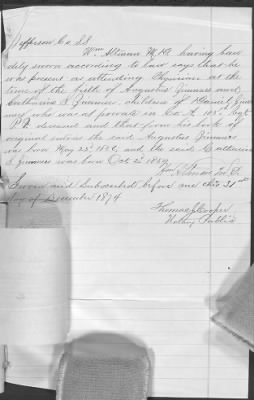 Jefferson Co. SS
Wm Altman M.D. having been
duly sworn according to law says that he
was present as attending Physician at the
time of the birth of Augustus Zimmers and
Catharine S Zimmers, children of Daniel Zim
mers who was a private in Co. K 105" Regt
P.V. deceased and that from his book of
original entries the said Augustus Zimmers
was born May 23d and the said Catharine
S Zimmers was born Oct 25"
Wm Altman M.D.
Sworn and Subscribed before me this 31st
day of December 1874
Thomas Cooper
Notary Public